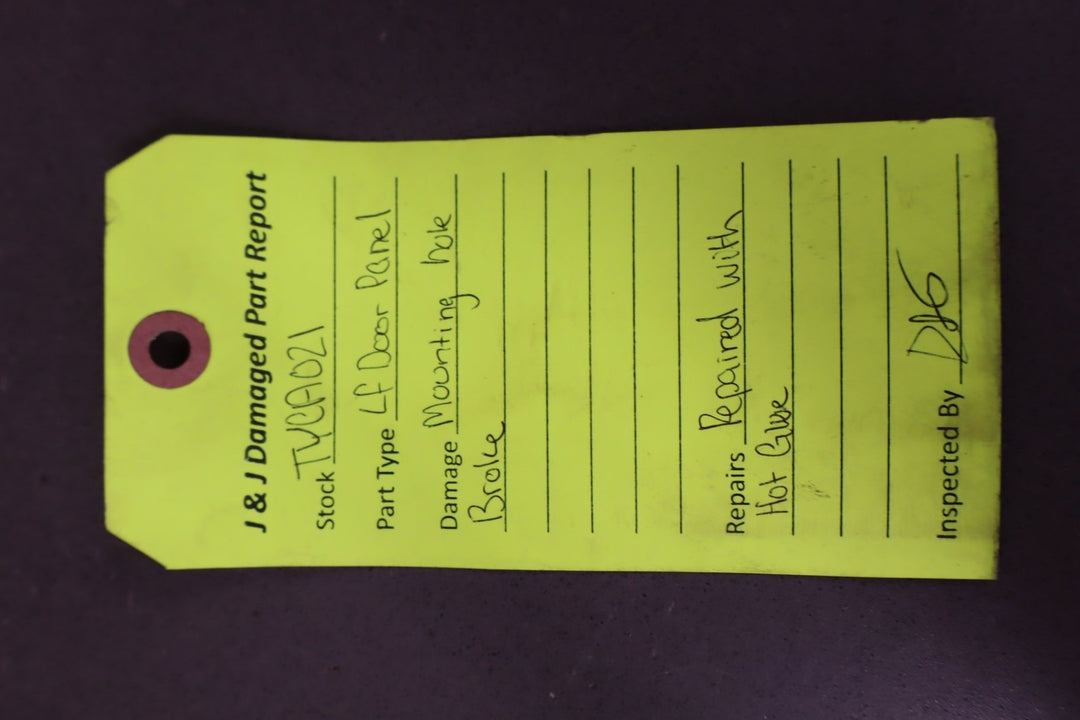 J & J Damaged Part Report
Stock TYCA021
Part Type Lf Door Panel
Damage Mounting hole
Broke
Repairs Repaired with
Hot Glue
Inspected By